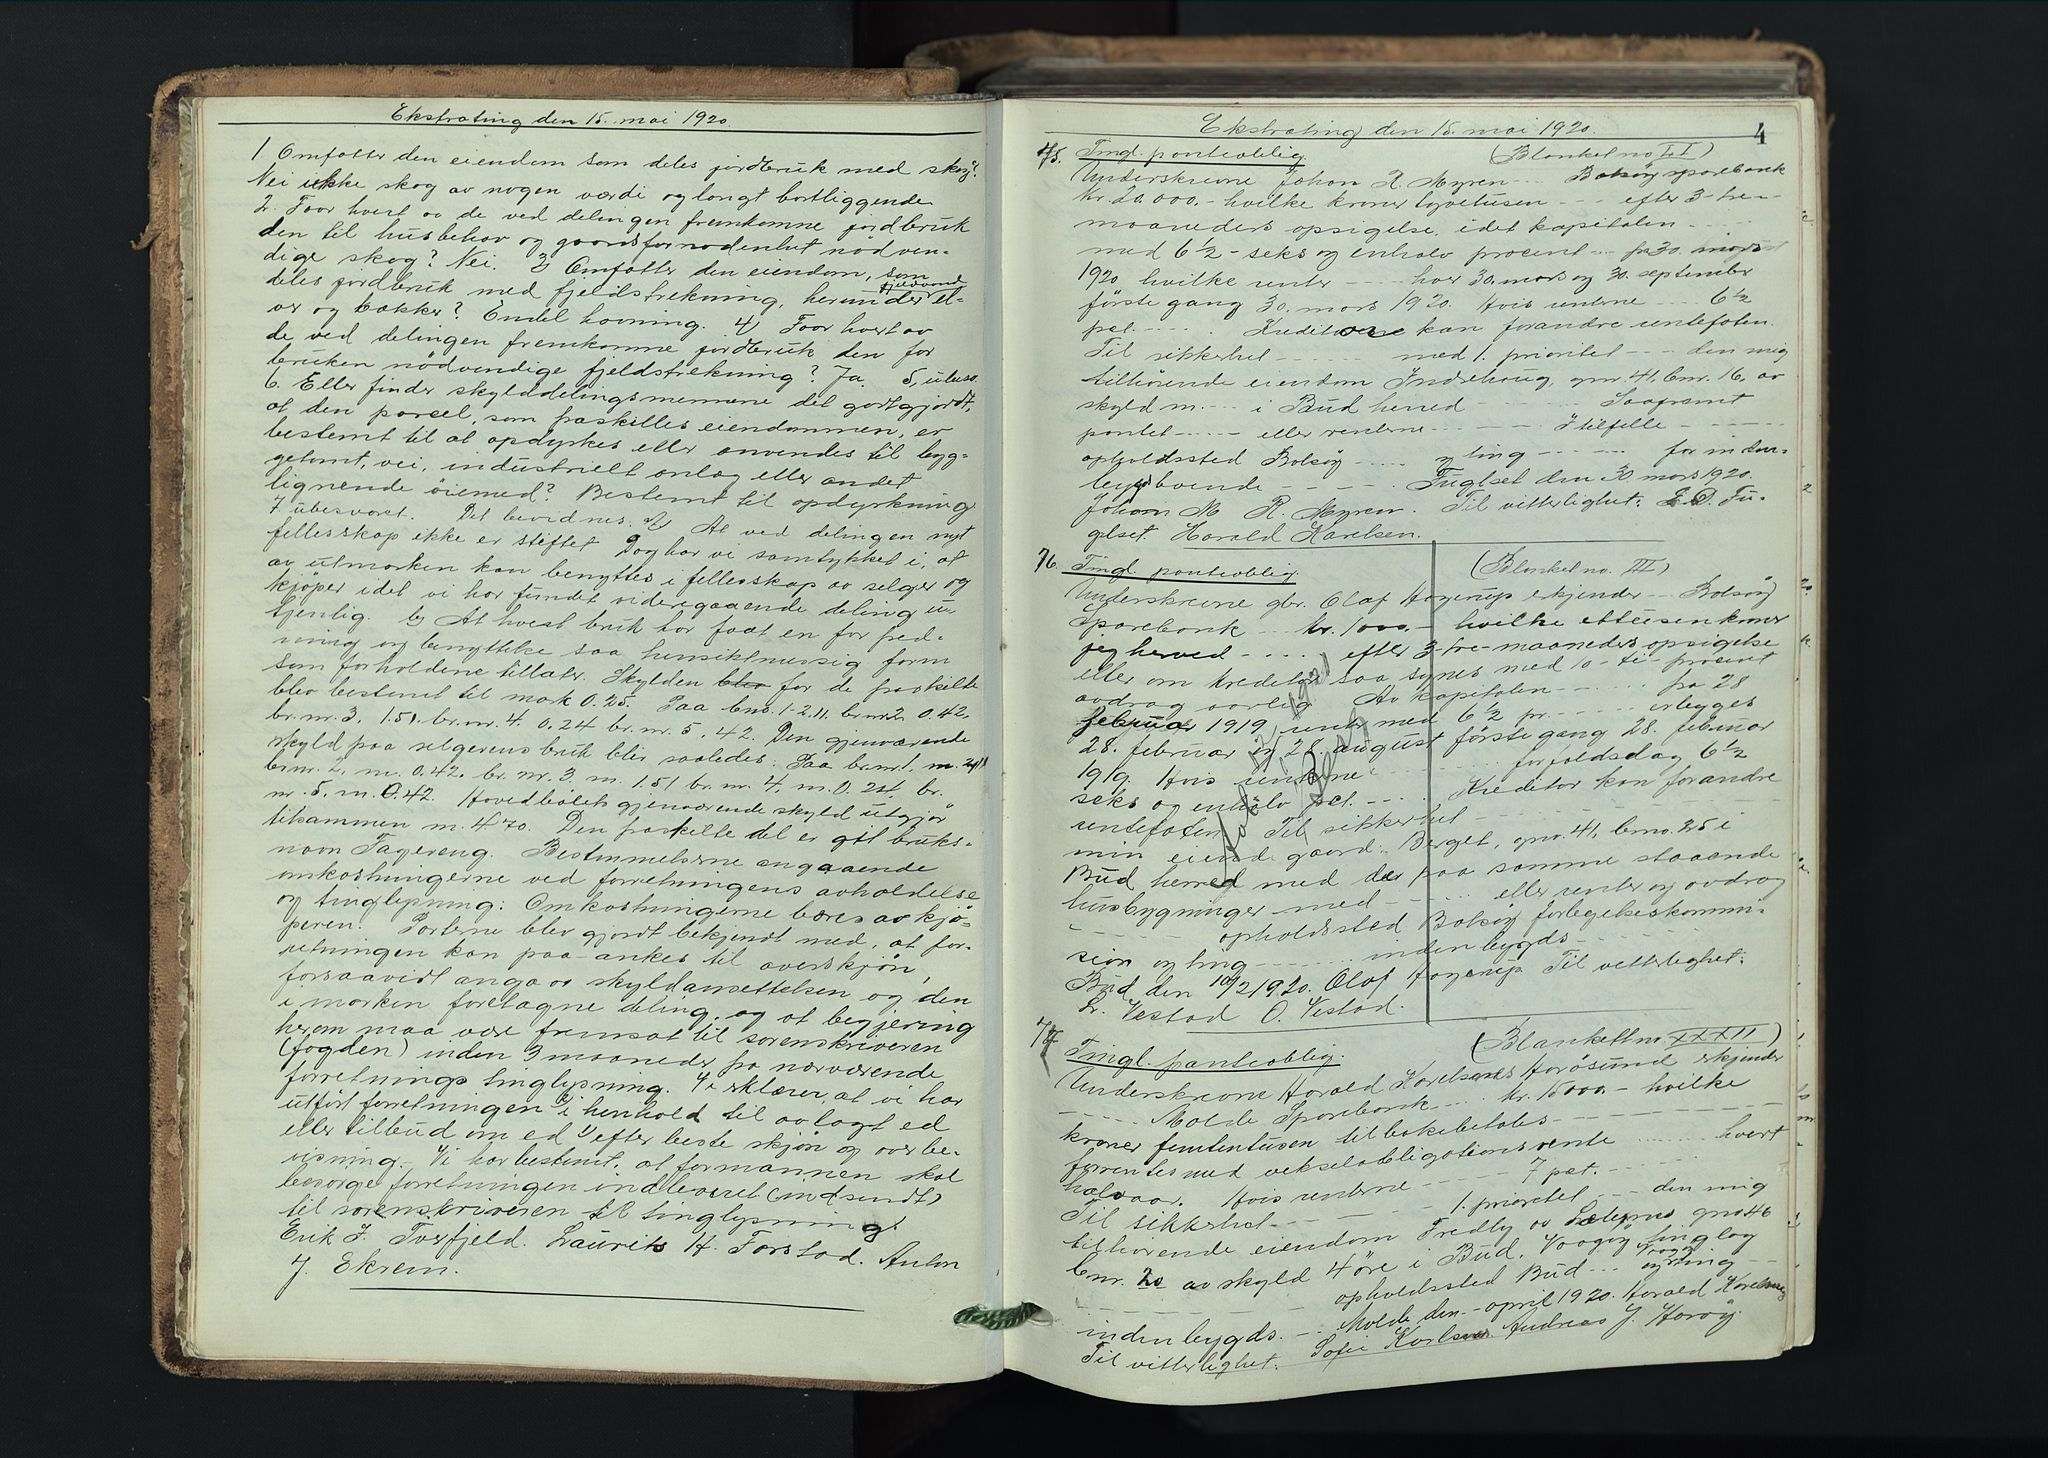 Ekstrating den 15. mai 1920.
1. Omfatter den eiendom som deles jordbruk med skog?
Nei ikke skog av nogen værdi og langt bortliggende
2. Faar hvert av de ved delingen fremkomne jordbruk
den til husbehov og gaardsfornødenhet nødven-
dige skog? Nei. 3) Omfatter den eiendom, som
deles jordbruk med fjeldstrekning, herunder
og bækker? Endel havning. 4) Faar hvert av
de ved delingen fremkomne jordbruk den for
bruken nødvendige fjeldstrekning? Ja. 5, ubesv.
6. Eller finder skylddelingsmennene det godtgjort,
at den parcel, som fraskilles eiendommen, er
bestemt til at opdyrkes eller anvendes til byg-
getomt, vei, industrielt anlæg eller andet
lignende øiemed? Bestemt til opdyrkning
7 ubesvaret. Det bevidnes. a) At ved delingen nyt
fellesskap ikke er stiftet Dog har vi samtykket i, at
av utmarken kan benyttes i fellesskap av selger og
kjøper idet vi har fundet videregaaende deling u-
tjenlig. b) At hvert bruk har faat en for fred-
ning og benyttelse saa hensiktmessig form
som forholdene tillater. Skylden blev for de fraskilte
blev bestemt til mark 0.25. Paa bno. 1 - 2.11. br.nr 2 0.42.
br. nr. 3. 1.51. br. nr. 4. 0.24 br. nr. 5. .42. Den gjenværende
skyld paa selgerens bruk blir saaledes: Paa br.nr. 1. m. 2.11
br. nr. 2, m. 0.42. br. nr. 3. m. 1.51 br. nr. 4, m. 0.24 br.
nr. 5. m. 0.42. Hovedbølets gjenværende skyld utgjør
tilsammen m. 4.70. Den fraskilte del er git bruks-
navn Fagereng. Bestemmelserne angaaende
omkostningerne ved forretningens avholdelse
og tinglysning: Omkostningerne bæres av kjø-
peren. Parterne blev gjordt bekjendt med, at for-
retningen kan paa-ankes til overskjøn,
forsaavidt angaar skyldansettelsen og den
i marken foretagne deling, og at begjæring
herom maa være fremsat til sorenskriveren
(fogden) inden 3 maaneder fra nærværende
forretnings tinglysning. Vi erklærer, at vi har
utført forretningen i henhold til avlagt ed
eller tilbud om ed efter beste skjøn og overbe-
visning. Vi har bestemt, at formannen skal
besørge forretningen indleveret (indsendt)
til sorenskriveren til tinglysning.
Erik J. Tverfjeld. Laurits H. Farstad. Anton
J. Ekrem.
Ekstrating den 15. mai 1920.
4
75. Tingl. panteoblig. (Blanket no LI)
Underskrevne Johan R. Myren ... Bolsøy sparebank
kr. 20.000.- hvilke kroner tyvetusen --- efter 3-tre-
maaneders opsigelse, idet kapitalen ....
med 6 1/2 - seks og enhalv procent -- fra 30. mars
1920, hvilke renter ---- hver 30. mars og 30. september
første gang 30. mars 1920. Hvis renterne .... 6 1/2
pct. --- . Kreditor kan forandre rentefoten.
Til sikkerhet ------ med 1. prioritet --- den mig
tilhørende eiendom Indrehaug, gnr. 41, bnr. 16, av
skyld m. --- i Bud herred ---- Saafremt
pantet ---- eller renterne ---- I tilfelle -----
opholdssted Bolsøy ---- og ting ----- for inden-
bygdsboende ------ Fuglset den 30 mars 1920.
Johan M R. Myren. Til vitterlighet: E. D. Fu-
gelset. Harald Karelsen.
76. Tingl. panteoblig. (Blanket no. III)
Underskrevne gbr. Olaf Hagerup erkjender --- Bolsøy
Sparebank --- kr. 1000.- hvilke ettusen kroner
jeg herved ---- efter 3-tre-maaneders opsigelse
eller om kreditor saa synes med 10-ti-procent
avdrag aarlig. Av kapitalen ----- fra 28
februar 1919, rente med 6 1/2 pr. ---- erlegges
28. februar og 28. august første gang 28. februar
1919. Hvis renterne ------ forfaldsdag 6 1/2
seks og enhalv pct. --- . Kreditor kan forandre
rentefoten. Til sikkerhet -----
min eiende gaard: Berget, gno. 41, bno. 25 i
Bud herred med der paa samme staaende
husbygninger med ---- eller renter og avdrag
------ opholdssted Bolsøy forlegelseskommi-
sion og ting ------ indenbygds ----
Bud, den 10/2 1920. Olaf Hagerup. Til vitterlighet:
L. Vestad O. Vestad.
77. Tingl. panteoblig. (Blankett nr XXXII)
Underskrevne Harald Karelsen Harøsund erkjender
---- Molde Sparebank --- kr. 15000.- hvilke
kroner femtentusen tilbakebetales -----
forrentes med vekselobligationsrente ---- hvert
halvaar. Hvis renterne ---- 7 pct. ----
Til sikkerhet ----- 1. prioritet --- den mig
tilhørende eiendom Fredly av gno 46
bnr. 20 av skyld 4 øre i Bud, Vaagøy tinglag
------ opholdssted Bud --- og ting --
indenbygds. -- Molde den -- april 1920. Harald Karelsen
Til vitterlighet: Sofie Karlsen Andreas J. Harøy.